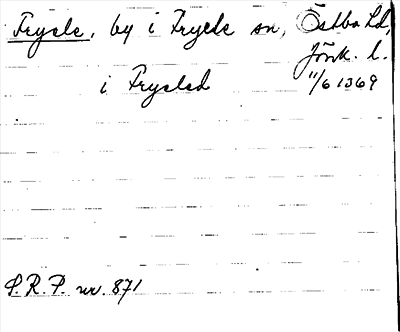 Fryele, by i Fryele sn, Östbo hd,
Jönk. l.
i Fryeled 11/6 1369
S.R.P. nr. 871